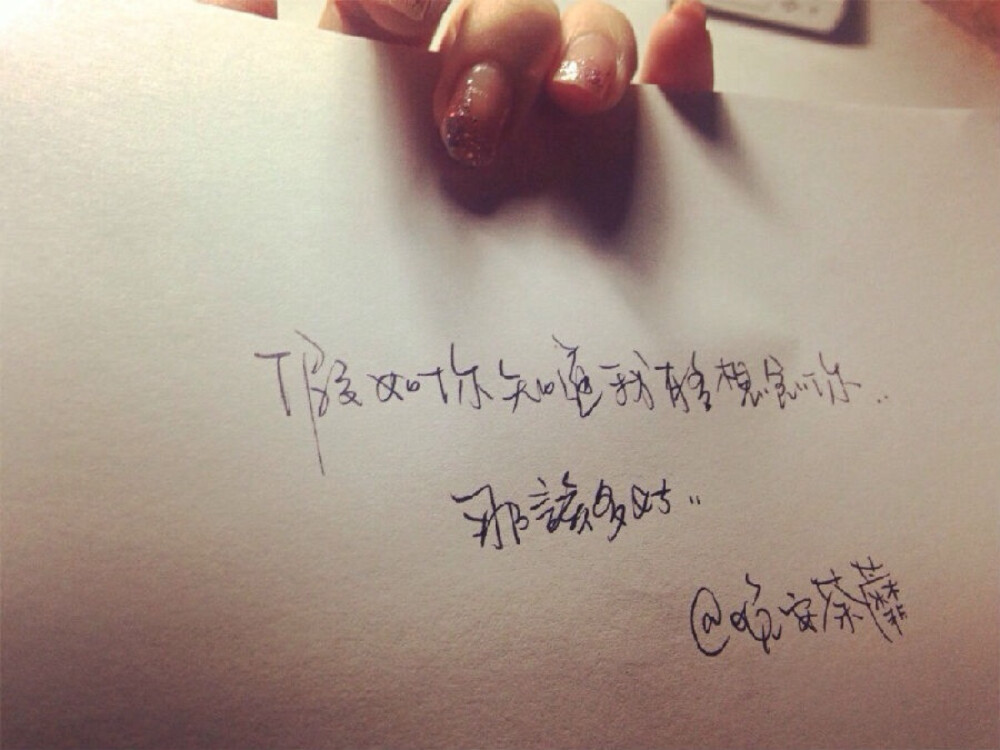 假如你知道我有多想念你..
那該多好..
@晚安茶蘼